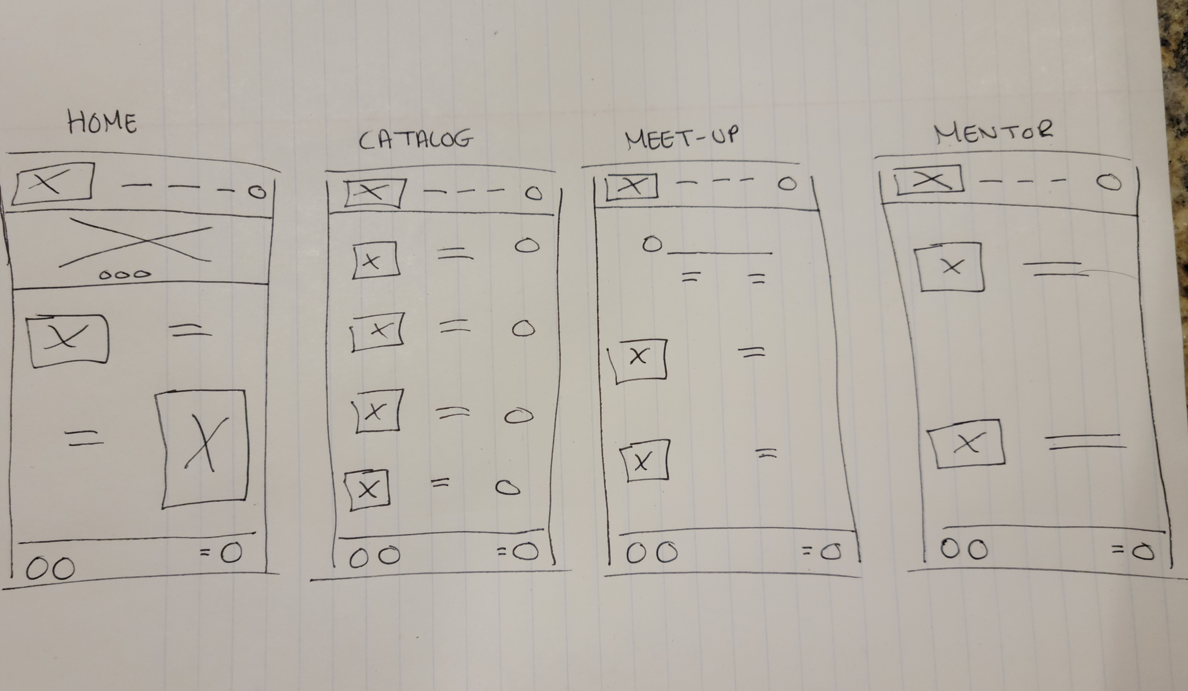 HOME
CATALOG
MEET-UP
MENTOR